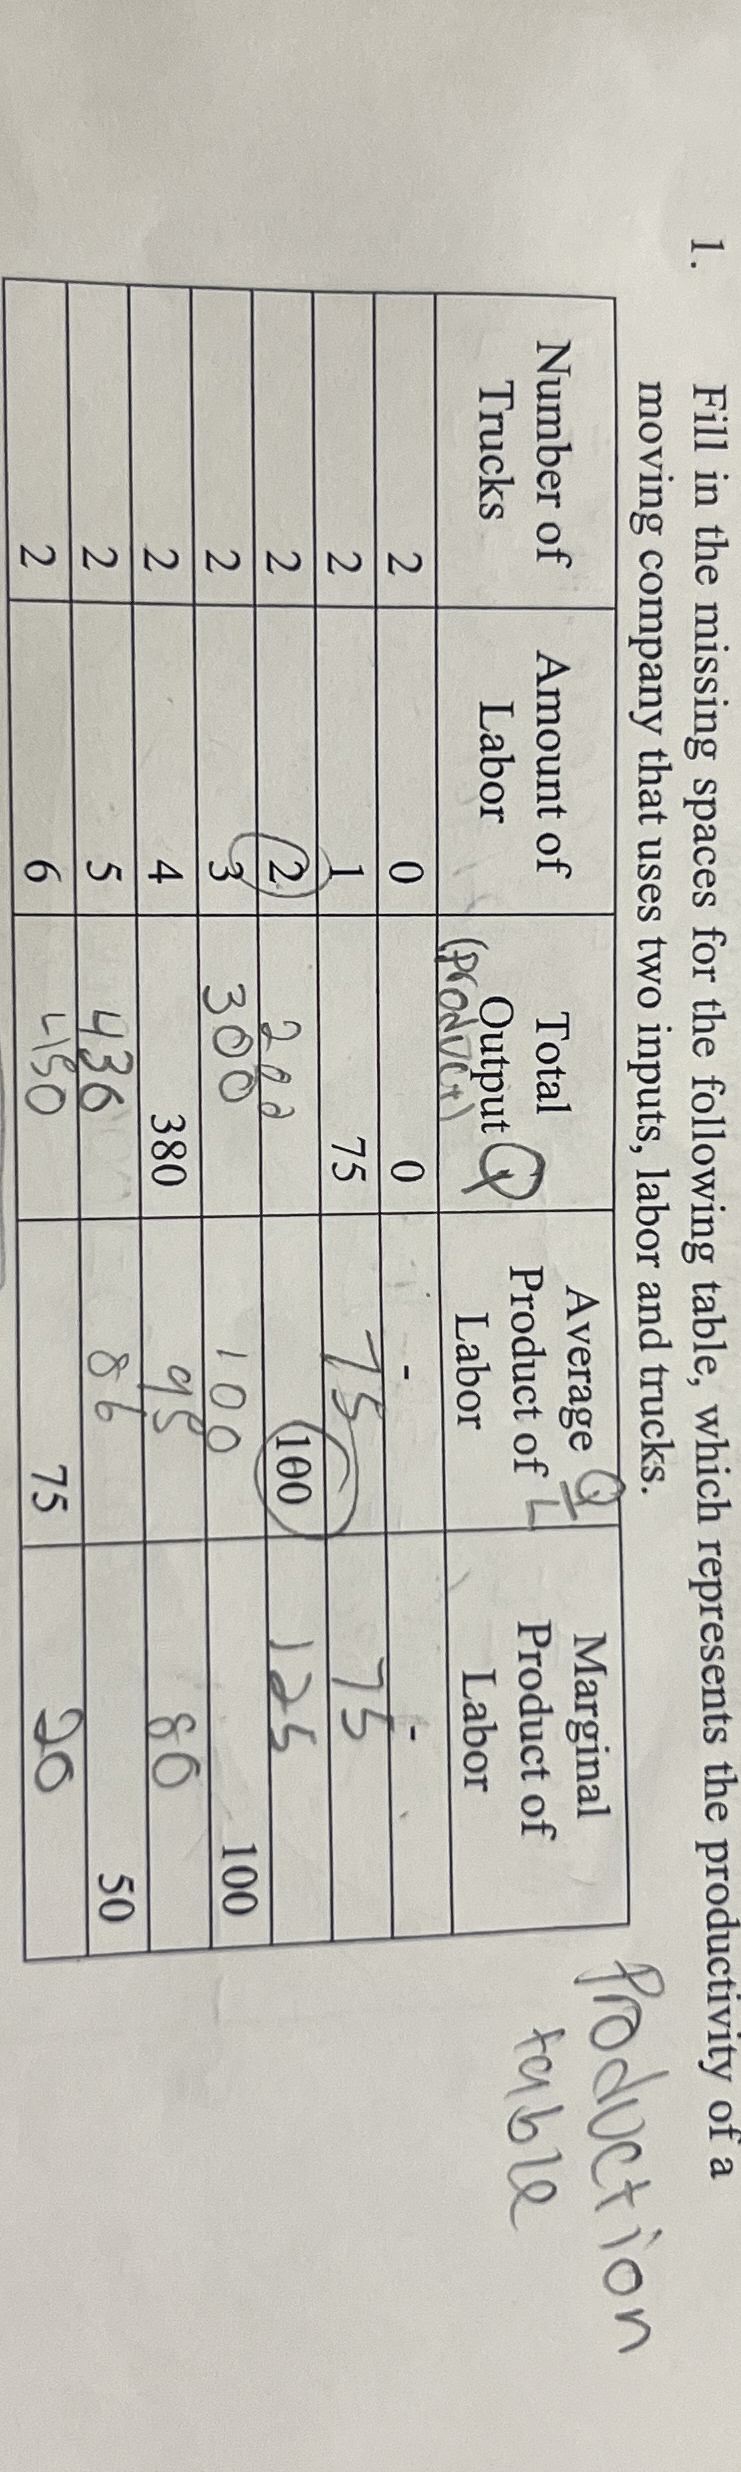 1. Fill in the missing spaces for the following table, which represents the productivity of a
moving company that uses two inputs, labor and trucks.
Production
table
Number of Trucks | Amount of Labor | Total Output Q (product) | Average Product of Labor Q/L | Marginal Product of Labor
2 | 0 | 0 | - | -
2 | 1 | 75 | 75 | 75
2 | 2 | 200 | 100 | 125
2 | 3 | 300 | 100 | 100
2 | 4 | 380 | 95 | 80
2 | 5 | 430 | 86 | 50
2 | 6 | 450 | 75 | 20